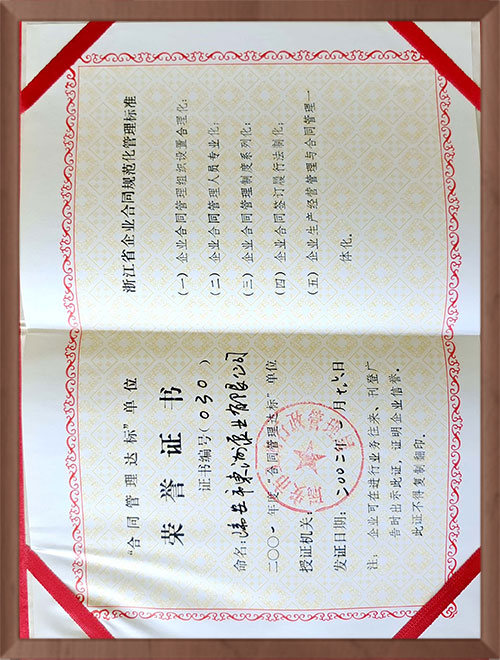 “合同管理达标”单位
荣誉证书
证书编号(030)
命名:瑞安市東 有限公司
二〇〇一年度“合同管理达标”单位
授证机关:
发证日期:二00二年 月 日
注:企业可在进行业务往来、刊登广
告时出示此证,证明企业信誉。
此证不得复制翻印。
浙江省企业合同规范化管理标准
(一)企业合同管理组织设置合理化;
(二)企业合同管理人员专业化;
(三)企业合同管理制度系列化;
(四)企业合同签订履行法制化;
(五)企业生产经营管理与合同管理一
体化。